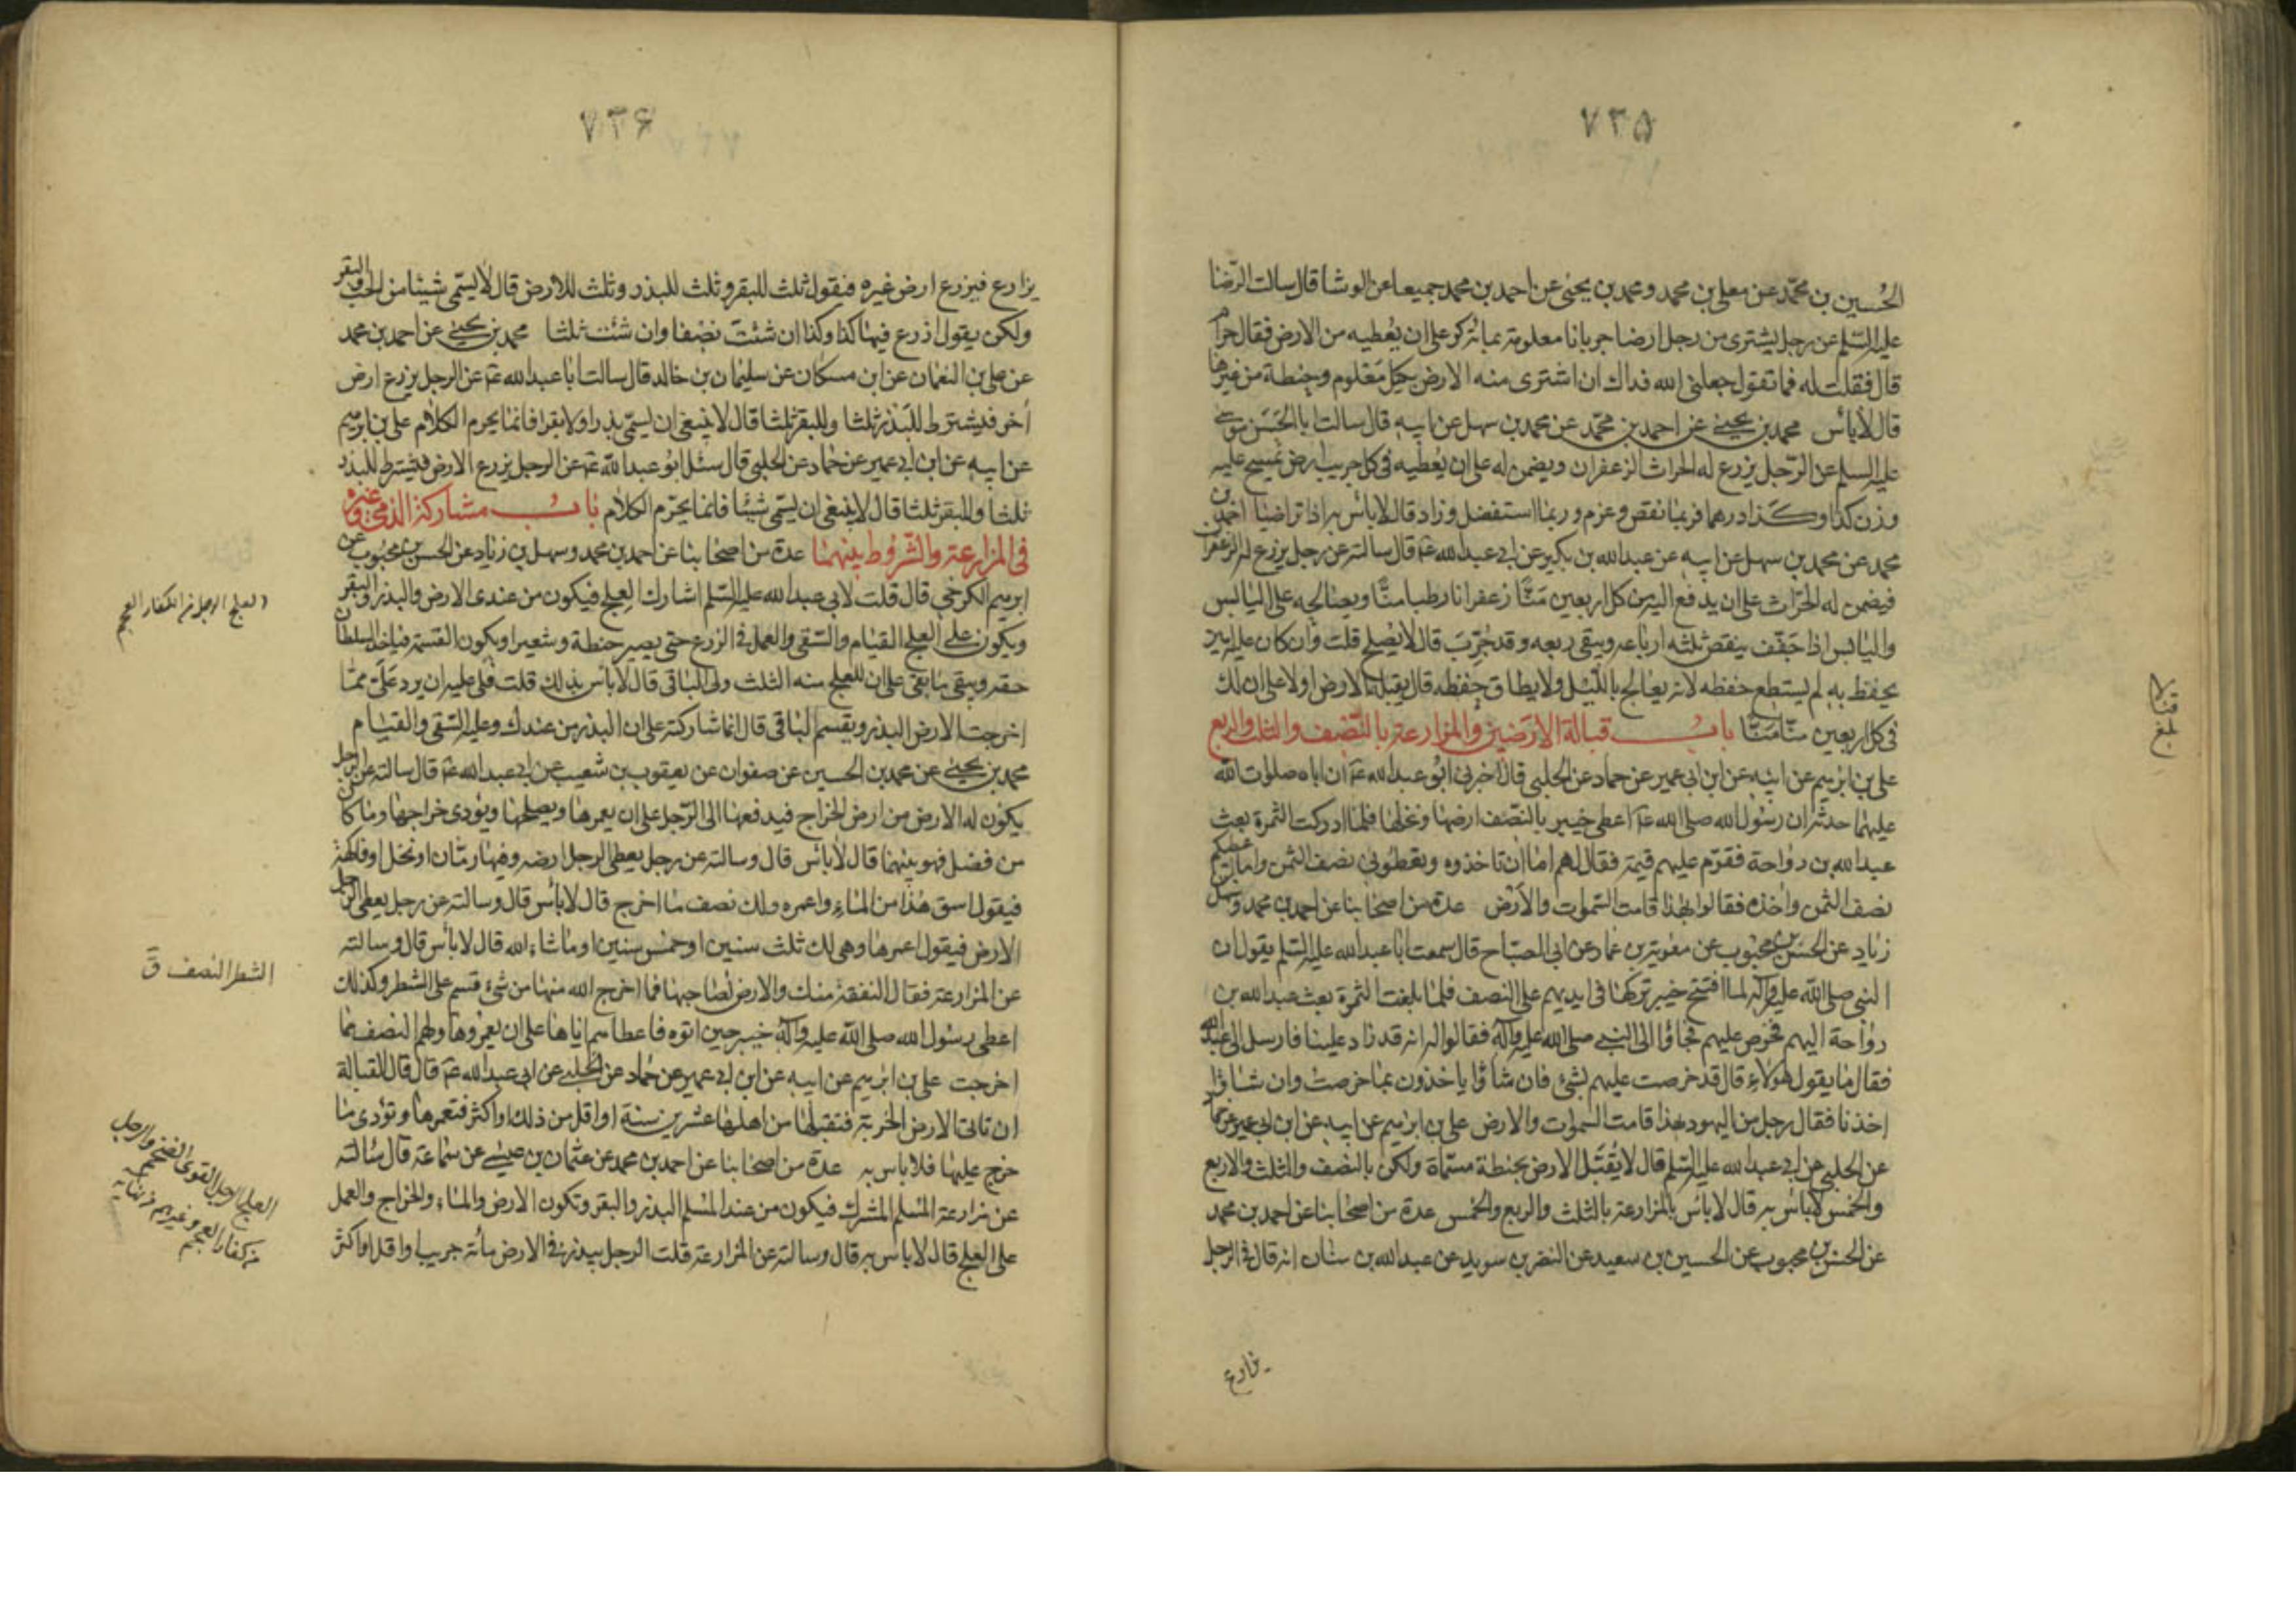 ٧٣٥
الحسين بن محمد عن معلى بن محمد ومحمد بن يحيى عن احمد بن محمد جميعا عن الوشا قال سالت الرضا
عليه السلم عن رجل يشترى من رجل ارضا جربانا معلومة بمائة كر على ان يعطيه من الارض فقال حرام
قال فقلت له فما تقول جعلنى الله فداك ان اشترى منه الارض بكيل معلوم وحنطة من غيرها
قال لا بأس محمد بن يحيى عن احمد بن محمد عن محمد بن سهل عن ابيه قال سالت ابا الحسن موسى
عليه السلم عن الرجل يزرع له الحراث الزعفران ويضمن له على ان يعطيه فى كل جريب ارض يمسح عليه
وزن كذا وكذا درهما فربما نقص وغرم وربما استفضل وزاد قال لا بأس به اذا تراضيا احمد بن
محمد عن محمد بن سهل عن ابيه عن عبد الله بن بكير عن ابى عبد الله ع قال سالته عن رجل يزرع له الزعفران
فيضمن له الحراث على ان يدفع اليه من كل اربعين منا زعفرانا رطبا منا ويصالحه على اليابس
واليابس اذا جفف ينقص ثلثه ارباعه ويبقى ربعه وقد جرب قال لا يصلح قلت وان كان عليه امين
يحفظ به لم يستطع حفظه لانه يعالج بالليل ولا يطاق حفظه قال يقبله الارض اولا على ان لك
فى كل اربعين منا منا باب قبالة الارضين والمزارعة بالنصف والثلث والربع
على بن ابرهيم عن ابيه عن ابن ابى عمير عن حماد عن الحلبى قال اخبرنى ابو عبد الله ع ان اباه صلوات الله
عليهما حدثه ان رسول الله صلى الله ع اعطى خيبر بالنصف ارضها ونخلها فلما ادركت الثمرة بعث
عبد الله بن رواحة فقوم عليهم قيمة فقال لهم اما ان تاخذوه وتعطونى نصف الثمن واما ان اعطيكم
نصف الثمن واخذه فقالوا بهذا قامت السموات والارض عدة من اصحابنا عن احمد بن محمد وسهل بن
زياد عن الحسن بن محبوب عن معوية بن عمار عن ابى الصباح قال سمعت ابا عبد الله عليه السلم يقول ان
النبى صلى الله عليه وآله لما افتتح خيبر تركها فى ايديهم على النصف فلما بلغت الثمرة بعث عبد الله بن
رواحة اليهم فخرص عليهم فجاؤا الى النبى صلى الله عليه وآله فقالوا له انه قد زاد علينا فارسل الى عبد الله
فقال ما يقول هؤلاء قال قد خرصت عليهم بشئ فان شاؤا ياخذون بما خرصت وان شاؤا
اخذنا فقال رجل من اليهود بهذا قامت السموات والارض على بن ابرهيم عن ابيه عن ابن ابى عمير عن حماد
عن الحلبى عن ابى عبد الله عليه السلم قال لا يقبل الارض بحنطة مسماة ولكن بالنصف والثلث والاربع
والخمس لا بأس به قال لا بأس بالمزارعة بالثلث والربع والخمس عدة من اصحابنا عن احمد بن محمد
عن الحسن بن محبوب عن الحسين بن سعيد عن النضر بن سويد عن عبد الله بن سنان انه قال فى الرجل
يزارع
٧٣۶
يزارع فيزرع ارض غيره فيقول ثلث للبقر وثلث للبذر وثلث للارض قال لا يسمى شيئا من الحب والبقر
ولكن يقول ازرع فيها كذا وكذا ان شئت نصفا وان شئت ثلثا محمد بن يحيى عن احمد بن محمد
عن على بن النعمان عن ابن مسكان عن سليمان بن خالد قال سالت ابا عبد الله ع عن الرجل يزرع ارض
أخر فيشترط للبذر ثلثا وللبقر ثلثا قال لا ينبغى ان يسمى بذرا ولا بقرا فانما يحرم الكلام على بن ابرهيم
عن ابيه عن ابن ابى عمير عن حماد عن الحلبى قال سئل ابو عبد الله ع عن الرجل يزرع الارض فيشترط للبذر
ثلثا وللبقر ثلثا قال لا ينبغى ان يسمى شيئا فانما يحرم الكلام باب مشاركة الذمى وغيره
فى المزارعة والشروط بينهما عدة من اصحابنا عن احمد بن محمد وسهل بن زياد عن الحسن بن محبوب عن
ابرهيم الكرخى قال قلت لابى عبد الله عليه السلم اشارك العلج فيكون من عندى الارض والبذر والبقر
ويكون على العلج القيام والسقى والعمل فى الزرع حتى يصير حنطة وشعيرا ويكون القسمة فياخذ السلطان
حقه ويبقى ما بقى على ان للعلج منه الثلث ولى الباقى قال لا بأس بذلك قلت فلى عليه ان يرد على مما
اخرجت الارض البذر ويقسم الباقى قال انما شاركته على ان البذر من عندك وعليه السقى والقيام
محمد بن يحيى عن محمد بن الحسين عن صفوان عن يعقوب بن شعيب عن ابى عبد الله ع قال سالته عن الرجل
يكون له الارض من ارض الخراج فيدفعها الى الرجل على ان يعمرها ويصلحها ويؤدى خراجها وما كان
من فضل فهو بينهما قال لا بأس قال وسالته عن رجل يعطى الرجل ارضه وفيها رمان او نخل او فاكهة
فيقول اسق هذا من الماء واعمره ولك نصف ما اخرج قال لا بأس قال وسالته عن رجل يعطى الرجل
الارض فيقول اعمرها وهى لك ثلث سنين او خمس سنين او ما شاء الله قال لا بأس قال وسالته
عن المزارعة فقال النفقة منك والارض لصاحبها فما اخرج الله منها من شئ قسم على الشطر وكذلك
اعطى رسول الله صلى الله عليه وآله خيبر حين اتوه فاعطاهم اياها على ان يعمروها ولهم النصف مما
اخرجت على بن ابرهيم عن ابيه عن ابن ابى عمير عن حماد عن الحلبى عن ابى عبد الله ع قال قال القبالة
ان تاتى الارض الخربة فتقبلها من اهلها عشرين سنة او اقل من ذلك او اكثر فتعمرها وتؤدى ما
خرج عليها فلا باس به عدة من اصحابنا عن احمد بن محمد عن عثمان بن عيسى عن سماعة قال سالته
عن مزارعة المسلم المشرك فيكون من عند المسلم البذر والبقر وتكون الارض والماء والخراج والعمل
على العلج قال لا باس به قال وسالته عن المزارعة قلت الرجل يبذر فى الارض مائة جريب او اقل او اكثر
العلج الرجل من الكفار العجم
الشطر النصف ق
العلج الرجل القوى الضخم والرجل
من كفار العجم وغيرهم نهاية